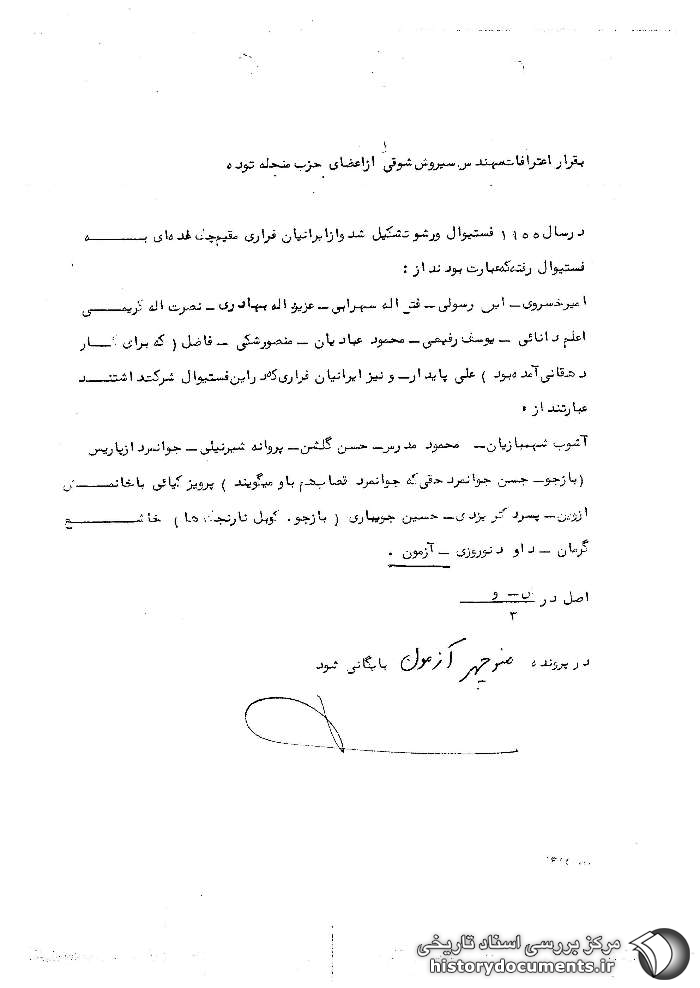 بقرار اعترافات مهندس سیروش شوقی از اعضای حزب منحله توده
در سال ۱۹۵۵ فستیوال ورشو تشکیل شد و از ایرانیان فراری مقیم عده‌ای به
فستیوال رفته که عبارت بودند از :
امیرخسروی ــ ابن رسولی ــ فتح اله سهرابی ــ عزیز اله بهادری ــ نصرت اله کریمی
اعلم دانائی ــ یوسف رفیعی ــ محمود عبادیان ــ منصور شکی ــ فاضل ( که برای
دهقانی آمده بود ) علی پایدار ــ و نیز ایرانیان فراری که در این فستیوال شرکت داشتند
عبارتند از :
آشوب شهبازیان ــ محمود مدرس ــ حسن گلشن ــ پروانه شیرنیلی ــ جوانمرد از پاریس
( بازجو ــ حسن جوانمرد حقی که جوانمرد قصاب هم باو میگویند ) پرویز کیائی با خانمش
از وین ــ پسر دکتر یزدی ــ حسین جویباری ( بازجو . کوبل نارنجک ها ) خاشع
کرمان ــ داود نوروزی ــ آزمون .
اصل در
۳
در پرونده منوچهر آزمون بایگانی شود
مرکز بررسی اسناد تاریخی
historydocuments.ir